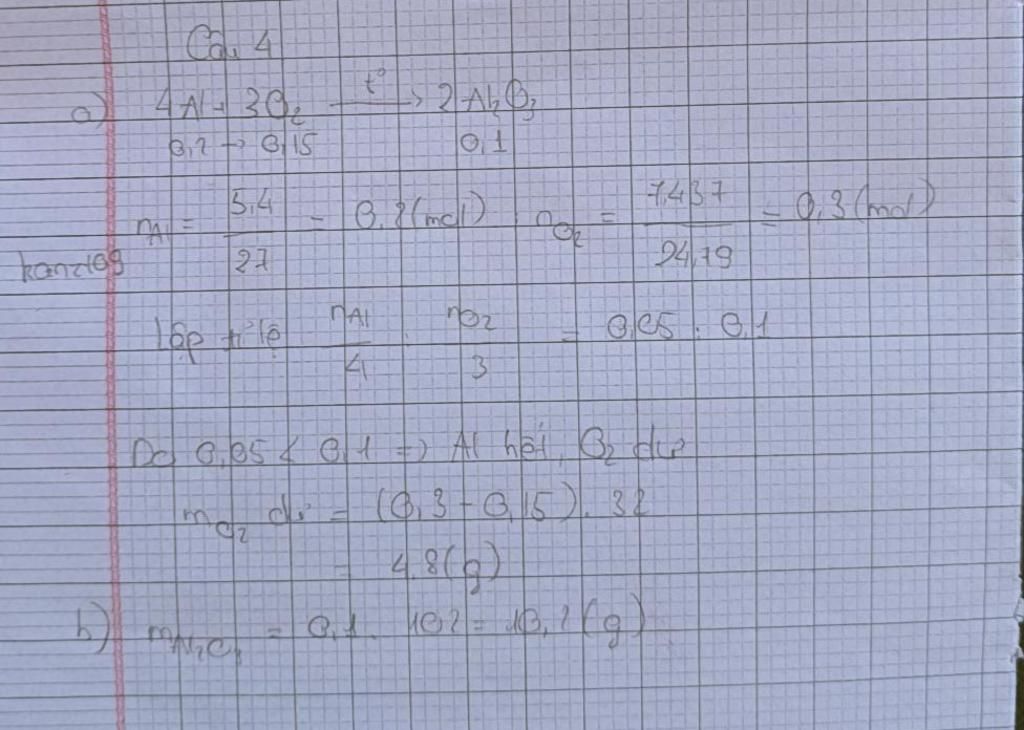 Câu 4
a) 4Al + 3O₂ —t°→ 2Al₂O₃
0,2 → 0,15 0,1
n_Al = 5,4/27 = 0,2 (mol) n_O₂ = 7,437/24,79 = 0,3 (mol)
Lập tỉ lệ n_Al/4 : n_O₂/3 = 0,05 : 0,1
Do 0,05 < 0,1 => Al hết, O₂ dư
m_O₂ dư = (0,3 - 0,15). 32
= 4,8 (g)
b) m_Al₂O₃ = 0,1. 102 = 10,2 (g)